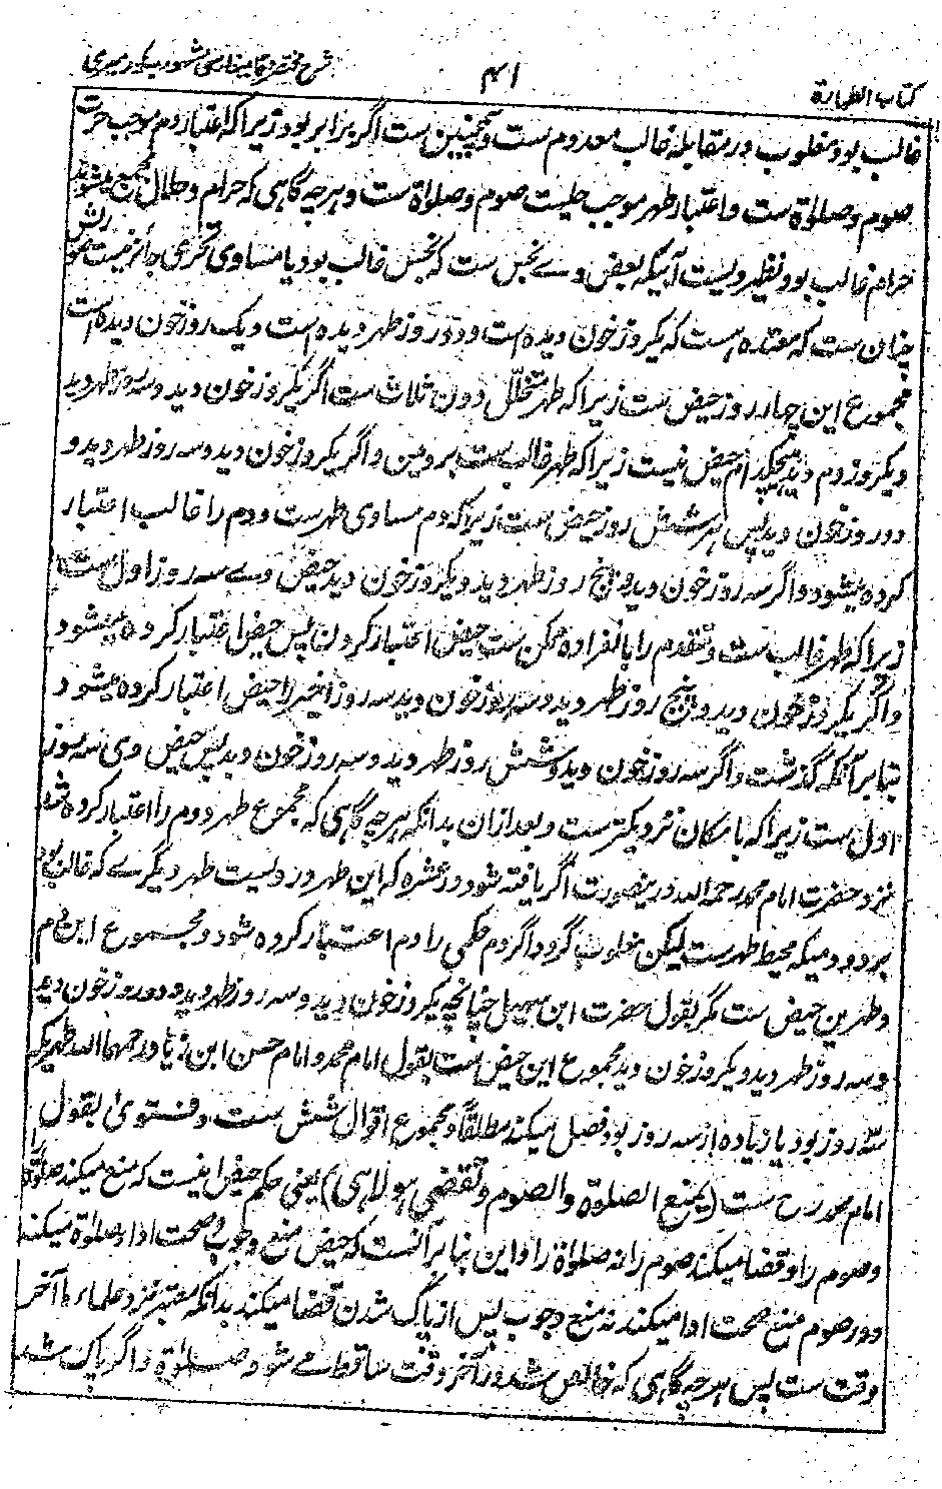 کتاب الطهارة
۴۱
شرح مختصر وقایه فارسی مشهور به کور میری
غالب بود و مغلوب در مقابله غالب معدوم ست و همچنین ست اگر برابر بود زیرا که اعتبار دم موجب حرمت
صوم و صلوٰة ست و اعتبار طهر موجب حلیت صوم و صلوٰة ست و هر چه گاهی که حرام و حلال جمع میشوند
حرام غالب بود و نظیر ویست آبیکه بعض وے نجس ست که نجس غالب بود یا مساوی
چنان ست که معتده است که یکروز خون دیده است و دو روز طهر دیده است و یک روز خون دیده است
مجموع این چهار روز حیض ست زیرا که طهر متخلل دون ثلاث ست اگر یکروز خون دید و سه روز طهر دید
و یکروز دم دید هیچکدام حیض نیست زیرا که طهر غالب ست بر دمین و اگر یکروز خون دید و سه روز طهر دید و
دو روز خون دید پس هر شش روز حیض ست زیرا که دم مساوی طهرست و دم را غالب اعتبار
کرده میشود و اگر سه روز خون دید و پنج روز طهر دید و یکروز خون دید حیض وے سه روز اول ست
زیرا که طهر غالب ست و متقدم را بانفراده ممکن ست حیض اعتبار کردن پس حیض اعتبار کرده میشود
و اگر یکروز خون دید و پنج روز طهر دید و سه روز خون دید سه روز اخیر را حیض اعتبار کرده میشود
بنا بر آنکه گذشت و اگر سه روز خون دید و شش روز طهر دید و سه روز خون دید پس حیض وی سه روز
اول ست زیرا که بامکان نزدیکتر ست و بعد ازان بدانکه هر چه گاهی که مجموع طهر و دم را اعتبار کرده شد
نزد حضرت امام محمد رحمه الله درینصورت اگر یافته شود در عشره که این طهر درویست طهر دیگرے که غالب بود
بر دو دمیکه محیط طهرست لیکن مغلوب گردد اگر دم حکمی را دم اعتبار کرده شود و مجموع این دم
و طهرین حیض ست مگر بقول حضرت ابن سهیل چنانچه یکروز خون دید و سه روز طهر دید و دو روز خون دید
و سه روز طهر دید و یکروز خون دید مجموع این حیض ست بقول امام محمد و امام حسن ابن زیاد رحمهما الله طهریکه
سه روز بود یا زیاده از سه روز بود فصل میکند مطلقاً و مجموع اقوال شش ست و فتویٰ بقول
امام محمد رح ست (یمنع الصلوة والصوم وتقضی هو لا هی) یعنی حکم حیض اینست که منع میکند صلوٰة را
و صوم را و قضا میکند صوم را نه صلوٰة را و این بنا بر آنست که حیض منع وجوب و صحت ادا صلوٰة میکند
و در صوم منع صحت ادا میکند نه منع وجوب پس از پاک شدن قضا میکند بدانکه معتبر نزد علماء ما آخر
وقت ست پس هر چه گاهی که حائض شد در آخر وقت ساقط مے شود صلوٰة و اگر پاک شد